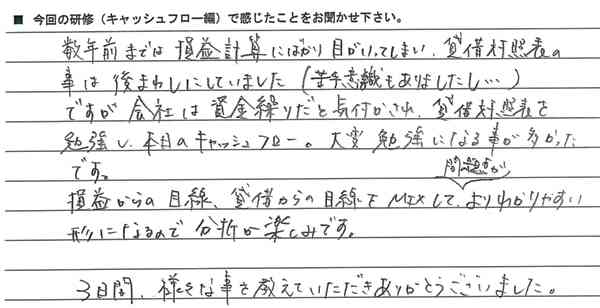 ■ 今回の研修（キャッシュフロー編）で感じたことをお聞かせ下さい。
数年前までは損益計算にばかり目がいってしまい、貸借対照表の
事は後まわしにしていました（苦手意識もありましたし…）
ですが会社は資金繰りだと気付かされ、貸借対照表を
勉強し、本日のキャッシュフロー。大変勉強になる事が多かった
です。
問題点が
損益からの目線、貸借からの目線をMIXして、よりわかりやすい
形になるので分析が楽しみです。
3日間、様々な事を教えていただきありがとうございました。